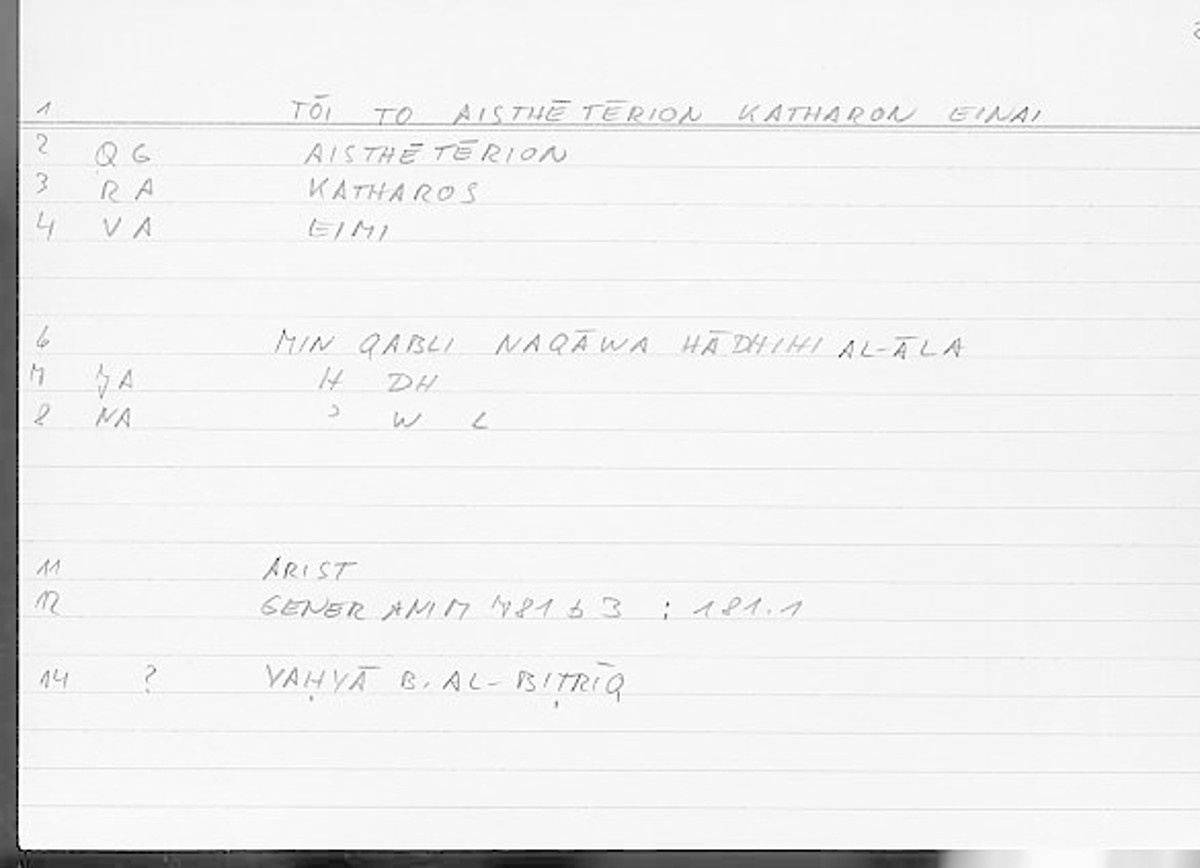 1 TŌI TO AISTHĒTĒRION KATHARON EINAI
2 QG AISTHĒTĒRION
3 RA KATHAROS
4 VA EIMI
6 MIN QABLI NAQĀWA HĀDHIHI AL-ĀLA
7 JA H DH
8 NA ʾ W L
11 ARIST
12 GENER ANIM 781 b 3 : 181.1
14 ? YAḤYĀ B. AL-BIṬRĪQ